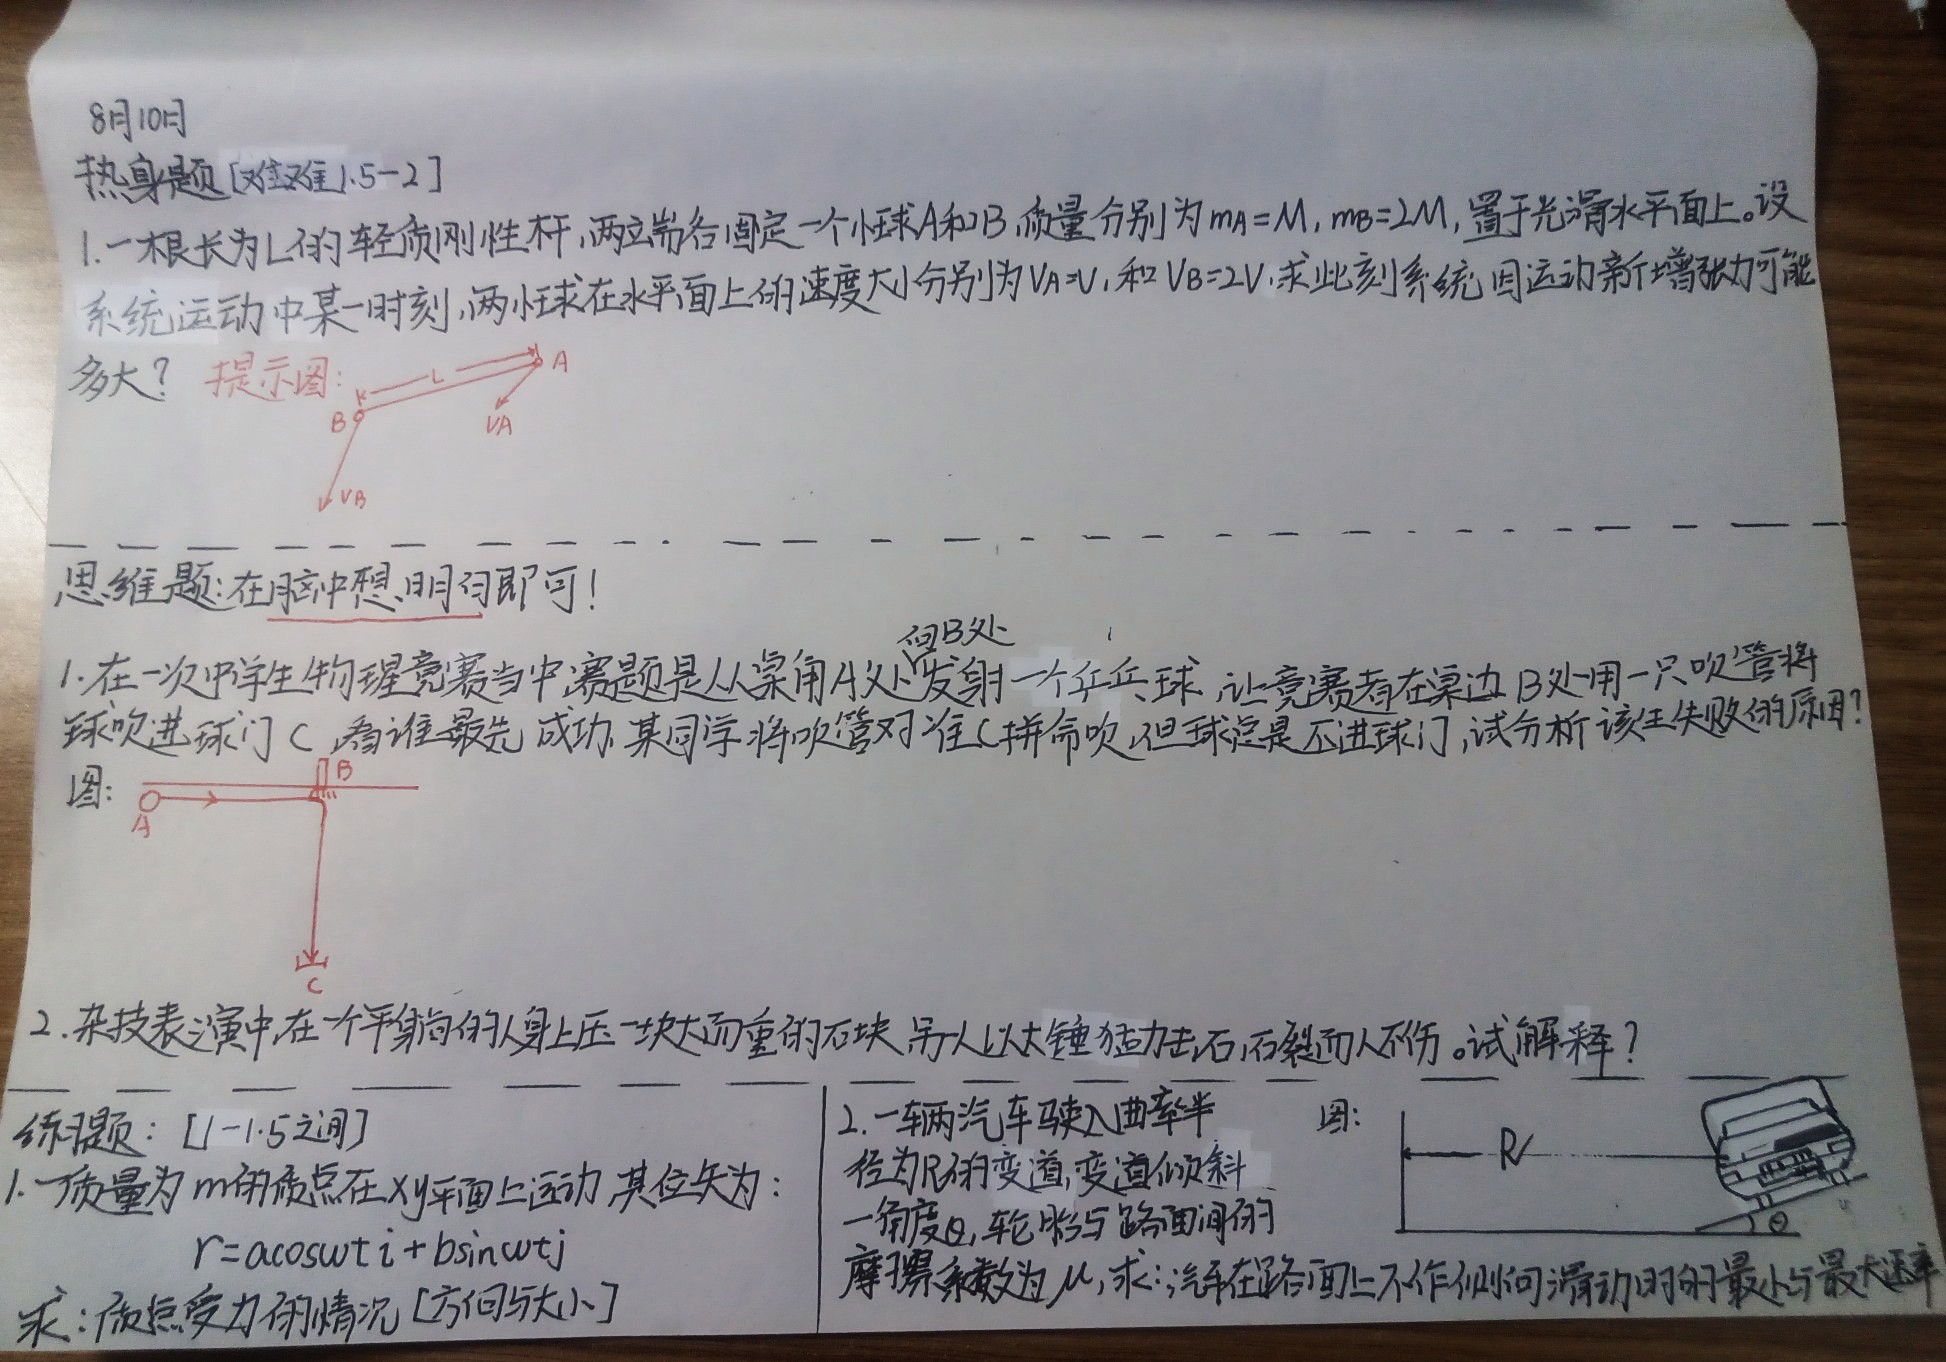 8月10日
热身题[难难1.5-2]
1.一根长为L的轻质刚性杆,两端各固定一个小球A和B,质量分别为mA=M,mB=2M,置于光滑水平面上。设
系统运动中某一时刻,两小球在水平面上的速度大小分别为VA=V,和VB=2V.求此刻系统因运动新增张力可能
多大? 提示图:
L
A
B
VA
VB
思维题:在脑中想明白即可!
向B处
1.在一次中学生物理竞赛当中,赛题是从桌角A处发射一个乒乓球,让竞赛者在桌边B处用一只吹管将
球吹进球门C,看谁最先成功,某同学将吹管对准C拼命吹,但球总是不进球门,试分析该生失败的原因?
图:
B
A
C
2.杂技表演中,在一个平躺的人身上压一块大而重的石块,另一人以大锤猛力击石,石裂而人不伤。试解释?
练习题:[1-1.5之间]
1.一质量为m的质点在xy平面上运动,其位矢为:
r=acoswti+bsinwtj
求:质点受力的情况[方向与大小]
2.一辆汽车驶入曲率半
径为R的变道,变道倾斜
一角度θ,轮胎与路面间的
摩擦系数为μ,求:汽车在路面上不作侧向滑动时的最小与最大速率
图:
R
θ